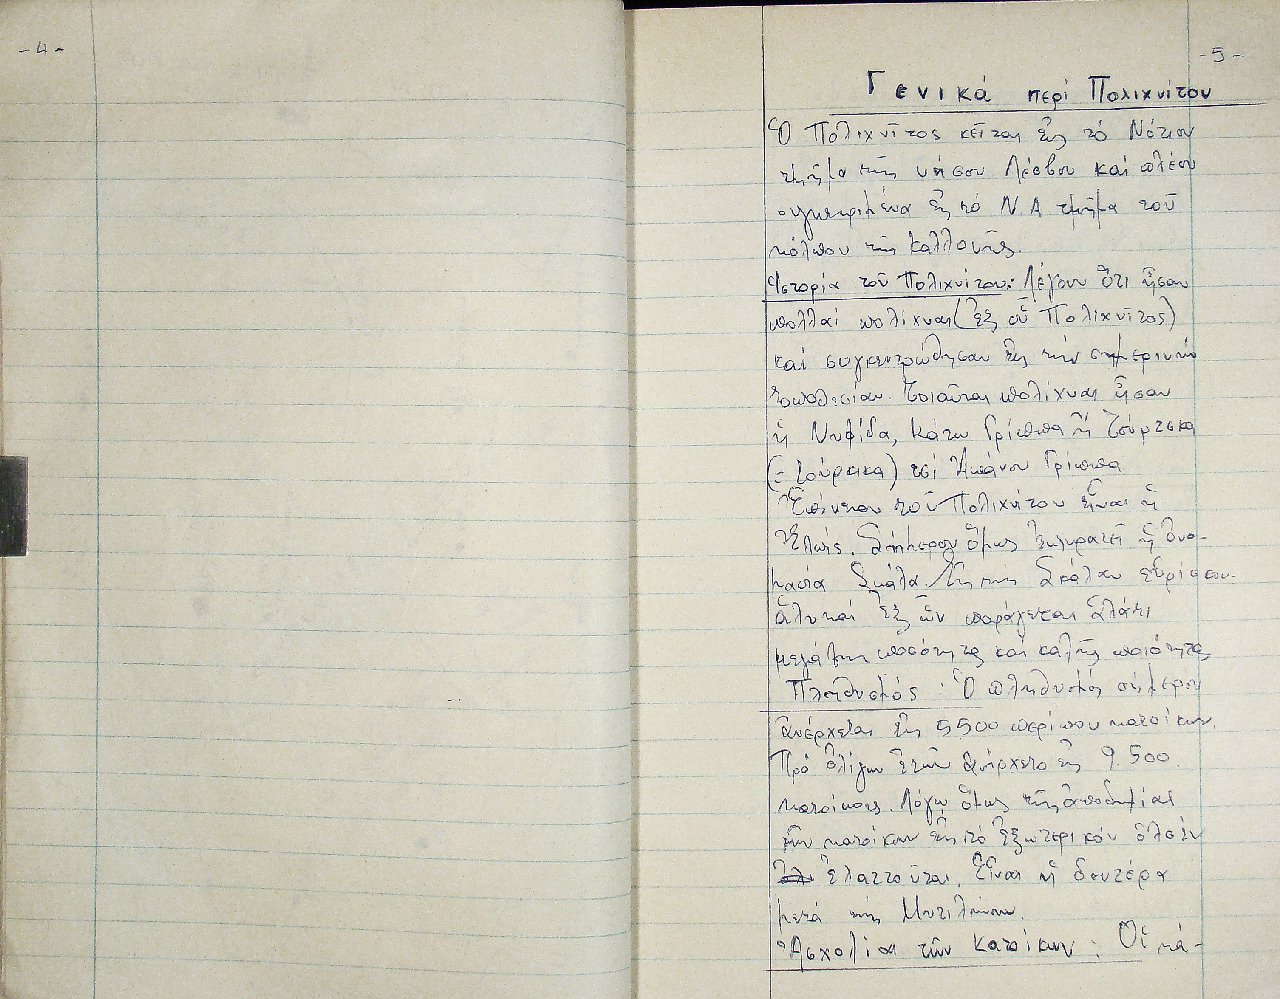 - 4 -
- 5 -
Γενικά περί Πολιχνίτου
Ὁ Πολιχνῖτος κεῖται εἰς τό Νότιον
τμῆμα τῆς νήσου Λέσβου καί πλέον
συγκεκριμένα εἰς τό Ν.Α τμῆμα τοῦ
κόλπου τῆς Καλλονῆς.
Ἱστορία τοῦ Πολιχνίτου: Λέγουν ὅτι ἦσαν
πολλαί πολίχναι (ἐξ οὗ Πολιχνῖτος)
καί συγκεντρώθησαν εἰς τήν σημερινήν
τοποθεσίαν. Τοιαῦται πολίχναι ἦσαν
ἡ Νυφίδα, Κάτω Γρίππα ἤ Τσούρτσκα
(= ) τσί Ἀπάνου Γρίππα
Ἐπίνειον τοῦ Πολιχνίτου εἶναι ἡ
Σήμερον ὅμως ἐπικρατεῖ ἡ ὀνο-
μασία Σκάλα. Εἰς τήν Σκάλαν εὑρίσκον.
ἁλυκαί ἐξ ὧν παράγεται ἁλάτι
μεγάλης ποσότητας καί καλῆς ποιότητας
Πληθυσμός: Ὁ πληθυσμός σήμερον
ἀνέρχεται εἰς 5500 περίπου κατοίκων.
Πρό ὀλίγων ἐτῶν ἀνήρχετο εἰς 9.500
κατοίκους. Λόγῳ ὅμως τῆς ἀποδημίας
τῶν κατοίκων εἰς τό ἐξωτερικόν ὁλοέν
ἐλαττοῦται. Εἶναι ἡ δευτέρα
μετά τήν Μυτιλήνην.
Ἀσχολίαι τῶν Κατοίκων: Οἱ κά-